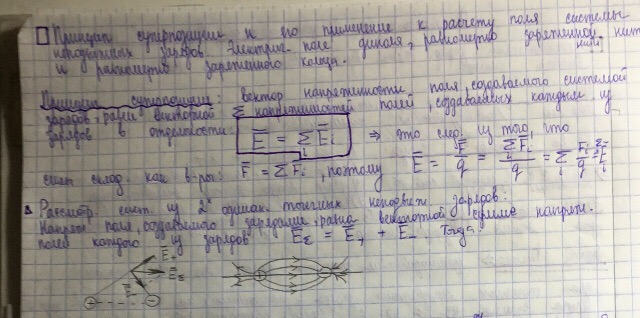 Принцип суперпозиции и его применение к расчету поля системы
неподвижных зарядов. Электрич. поле диполя, равномерно заряженной нити
и равномерно заряженного кольца.
Принцип суперпозиции: вектор напряженности поля, создаваемого системой
зарядов, равен векторной Σ напряженностей полей, создаваемых каждым из
зарядов в отдельности: E̅ = ∑ E̅ᵢ ⇒ это след. из того, что
силы склад. как в-ры: F̅ = ∑ F̅ᵢ, поэтому E̅ = F̅/q = ∑ F̅ᵢ/q = ∑ F̅ᵢ/q = ∑ E̅ᵢ
Рассмотр. сист. из 2ˣ одинак. точечных неподвиж. зарядов:
Напряж. поля, создаваемого зарядами, равна векторной сумме напряж.
полей каждого из зарядов E̅_Σ = E̅₊ + E̅₋. Тогда:
E̅₊
E̅_Σ
E̅₋
+ − + −